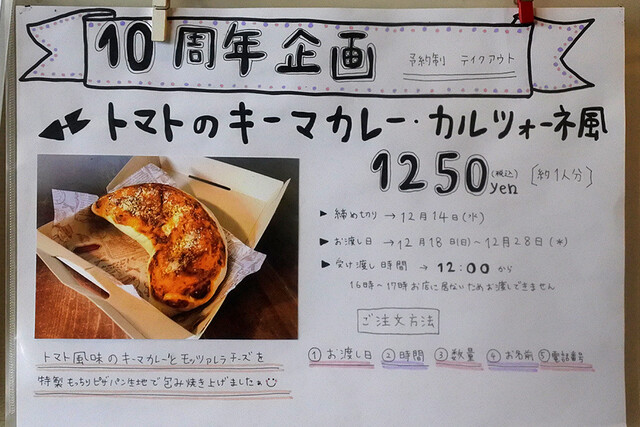 10周年企画
予約制 テイクアウト
トマトのキーマカレー・カルツォーネ風
1250yen (税込) [約1人分]
▶ 締め切り → 12月14日(水)
▶ お渡し日 → 12月18日(日)～12月28日(水)
▶ 受け渡し時間 → 12:00から
16時～17時お店に居ないためお渡しできません
ご注文方法
①お渡し日 ②時間 ③数量 ④お名前 ⑤電話番号
トマト風味のキーマカレーとモッツァレラチーズを
特製もっちりピザパン生地で包み焼き上げましたぁ